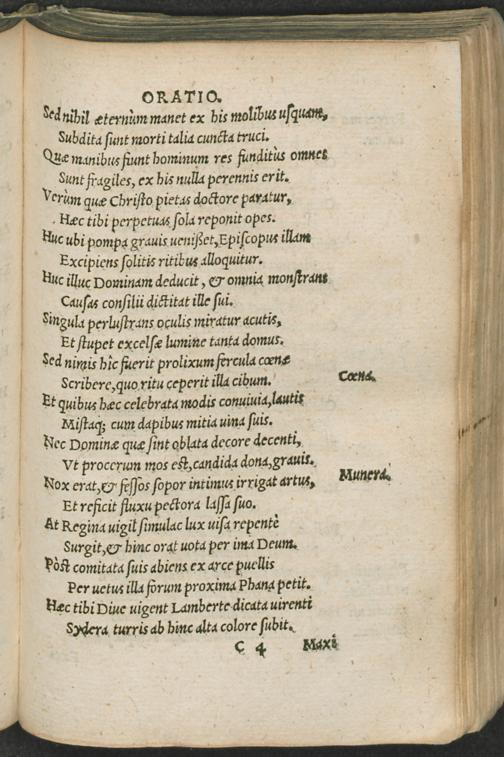 ORATIO.
Sed nihil æternùm manet ex his molibus usquam,
Subdita sunt morti talia cuncta truci.
Quæ manibus fiunt hominum res funditùs omnes
Sunt fragiles, ex his nulla perennis erit.
Verùm quæ Christo pietas doctore paratur,
Hæc tibi perpetuas sola reponit opes.
Huc ubi pompa grauis uenißet, Episcopus illam
Excipiens solitis ritibus alloquitur.
Huc illuc Dominam deducit, & omnia monstrans
Causas consilii dictitat ille sui.
Singula perlustrans oculis miratur acutis,
Et stupet excelsæ lumine tanta domus.
Sed nimis hîc fuerit prolixum fercula cœnæ
Scribere, quo ritu ceperit illa cibum.
Cœna.
Et quibus hæc celebrata modis conuiuia, lautis
Mistaq; cum dapibus mitia uina suis.
Nec Dominæ quæ sint oblata decore decenti,
Vt procerum mos est, candida dona, grauis.
Munera.
Nox erat, & fessos sopor intimus irrigat artus,
Et reficit fluxu pectora lassa suo.
At Regina uigil simulac lux uisa repentè
Surgit, & hinc orat uota per ima Deum.
Pòst comitata suis abiens ex arce puellis
Per uetus illa forum proxima Phana petit.
Hæc tibi Diue uigent Lamberte dicata uirenti
Sydera turris ab hinc alta colore subit.
C 4 Maxi